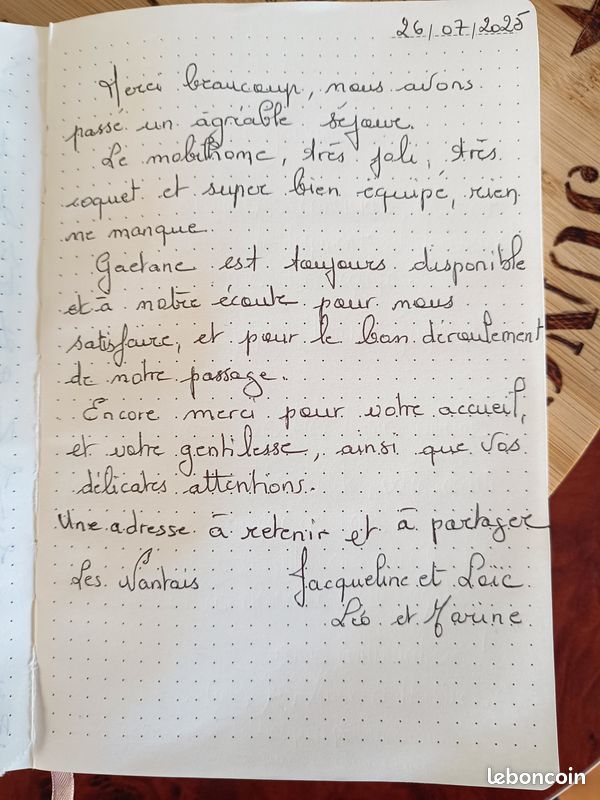 26/07/2025
Merci beaucoup, nous avons
passé un agréable séjour.
Le mobilhome, très joli, très
coquet et super bien équipé, rien
ne manque.
Gaetane est toujours disponible
et à notre écoute pour nous
satisfaire, et pour le bon déroulement
de notre passage.
Encore merci pour votre accueil,
et votre gentilesse, ainsi que vos
délicates attentions.
Une adresse à retenir et à partager
Les Nantais Jacqueline et Loïc
Léo et Marine
JUNG
leboncoin